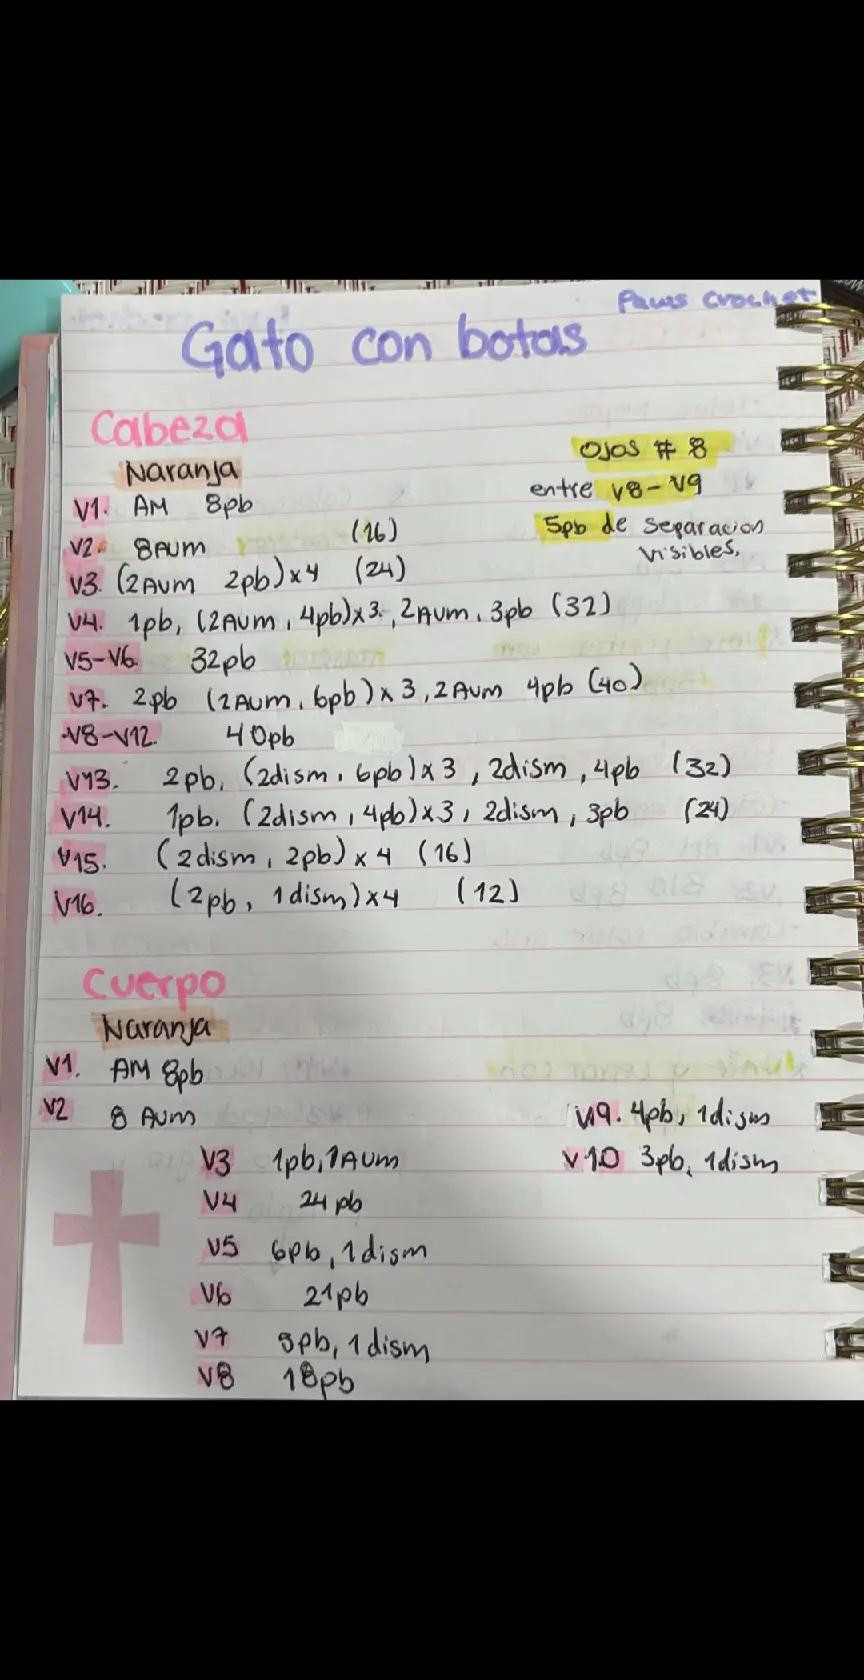 Paws Crochet
Gato con botas
Cabeza
Naranja
V1. AM 8pb
V2. 8Aum (16)
V3. (2Aum 2pb)x4 (24)
V4. 1pb, (2Aum, 4pb)x3, 2Aum, 3pb (32)
V5-V6. 32pb
V7. 2pb (2Aum, 6pb)x3, 2Aum 4pb (40)
V8-V12. 40pb
V13. 2pb, (2dism, 6pb)x3, 2dism, 4pb (32)
V14. 1pb. (2dism, 4pb)x3, 2dism, 3pb (24)
V15. (2dism, 2pb)x4 (16)
V16. (2pb, 1dism)x4 (12)
Ojos # 8
entre V8-V9
5pb de separacion
visibles.
Cuerpo
Naranja
V1. AM 8pb
V2 8 Aum
V3 1pb, 1Aum
V4 24pb
V5 6pb, 1dism
V6 21pb
V7 5pb, 1dism
V8 18pb
V9. 4pb, 1dism
V10 3pb, 1dism